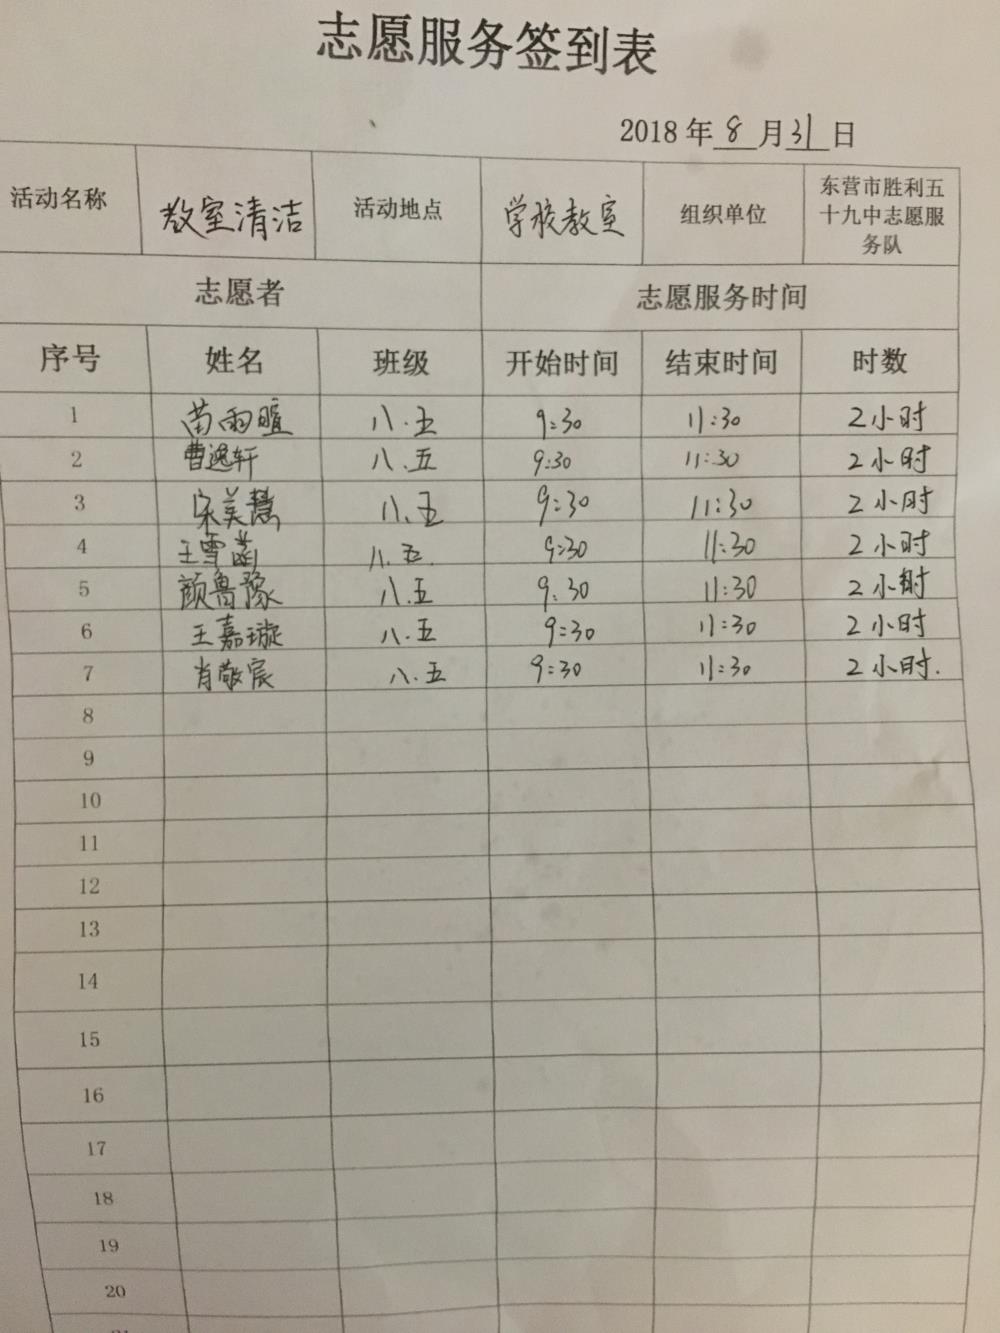 志愿服务签到表
2018年8月31日
活动名称 教室清洁 活动地点 学校教室 组织单位 东营市胜利五十九中志愿服务队
志愿者 志愿服务时间
序号 姓名 班级 开始时间 结束时间 时数
1 苗雨暄 八.五 9:30 11:30 2小时
2 曹逸轩 八.五 9:30 11:30 2小时
3 宋美慧 八.五 9:30 11:30 2小时
4 王雪菡 八.五. 9:30 11:30 2小时
5 颜鲁豫 八.五 9:30 11:30 2小时
6 王嘉璇 八.五 9:30 11:30 2小时
7 肖敬宸 八.五 9:30 11:30 2小时.
8
9
10
11
12
13
14
15
16
17
18
19
20